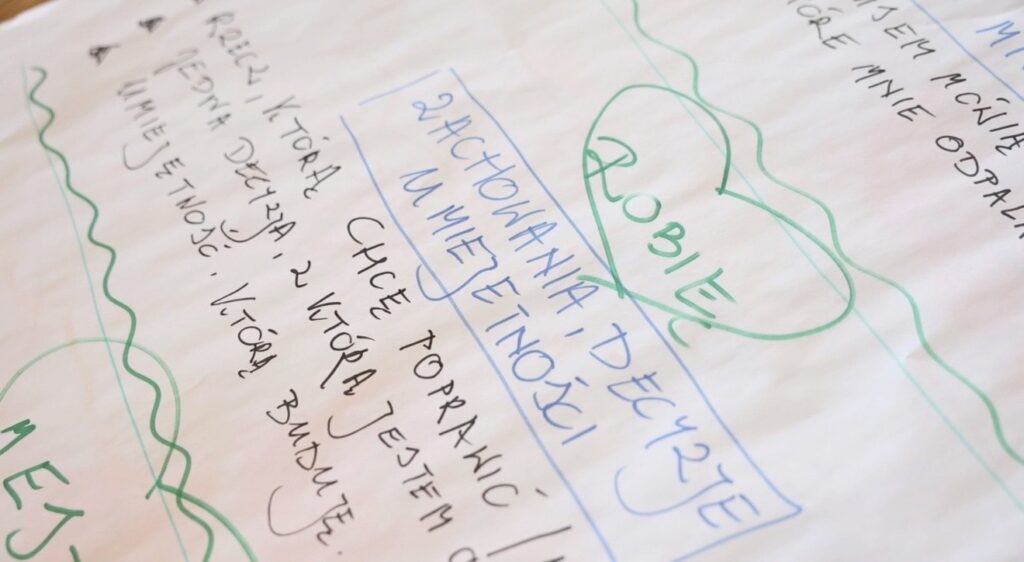 MNIE
ROBIĘ
ZACHOWANIA, DECYZJE
UMIEJĘTNOŚCI
RZECZ, KTÓRĄ CHCE POPRAWIĆ /
JEDNA DECYZJA, Z KTÓRĄ JESTEM
UMIEJĘTNOŚĆ, KTÓRĄ BUDUJĘ.